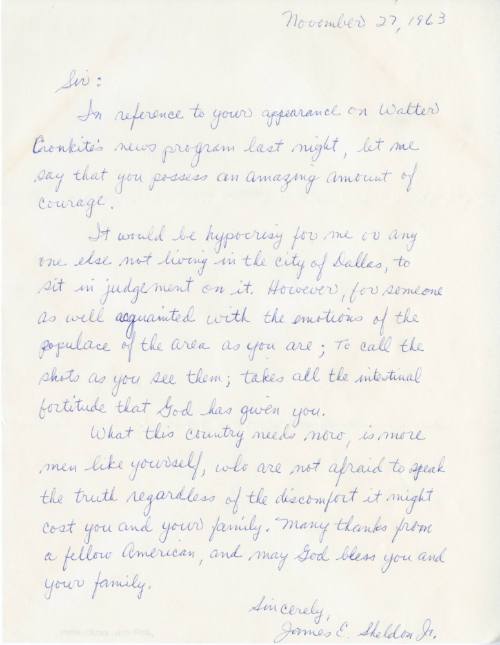 November 27, 1963
Sir:
In reference to your appearance on Walter
Cronkite's news program last night, let me
say that you possess an amazing amount of
courage.
It would be hypocrisy for me or any
one else not living in the city of Dallas, to
sit in judgement on it. However, for someone
as well acquainted with the emotions of the
populace of the area as you are; to call the
shots as you see them; takes all the intestinal
fortitude that God has given you.
What this country needs now, is more
men like yourself, who are not afraid to speak
the truth regardless of the discomfort it might
cost you and your family. Many thanks from
a fellow American, and may God bless you and
your family.
Sincerely,
James E. Sheldon Jr.